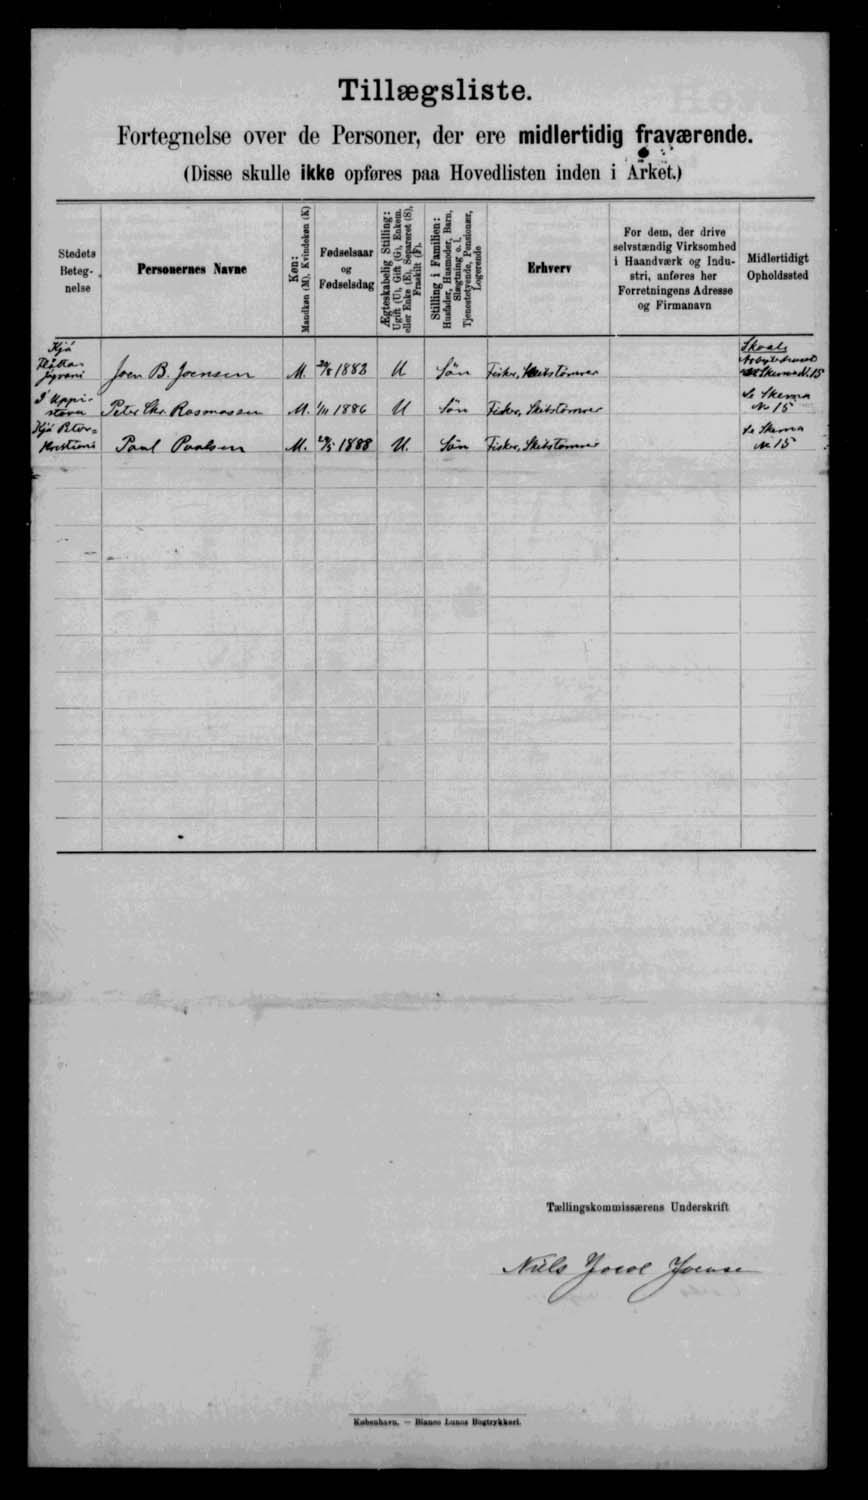 Tillægsliste.
Fortegnelse over de Personer, der ere midlertidig fraværende.
(Disse skulle ikke opføres paa Hovedlisten inden i Arket.)
Stedets
Beteg-
nelse
Personernes Navne
Køn:
Mandkøn (M), Kvindekøn (K)
Fødselsaar
og
Fødselsdag
Ægteskabelig Stilling:
Ugift (U), Gift (G), Enkem.
eller Enke (E), Separeret (S),
Fraskilt (F).
Stilling i Familien:
Husfader, Husmoder, Barn,
Slægtning o. l.
Tjenestetyende, Pensionær,
Logerende
Erhverv
For dem, der drive
selvstændig Virksomhed
i Haandværk og Indu-
stri, anføres her
Forretningens Adresse
og Firmanavn
Midlertidigt
Opholdssted
Hjá
Joen B. Joensen M. 1883 U Søn Fisker, Skibstømrer Skema N. 15
Í Uppi-
stovu Peter Chr. Rasmussen M. 1/11 1886 U Søn Fisker, Skibstømrer Se Skema
No 15
Hjá Petor-
Kristianu Paul Poulsen M. 1888 U. Søn Fisker, Skibstømrer Se Skema
No 15
Tællingskommissærens Underskrift
Niels Jacob Joense
København. — Bianco Lunos Bogtrykkeri.